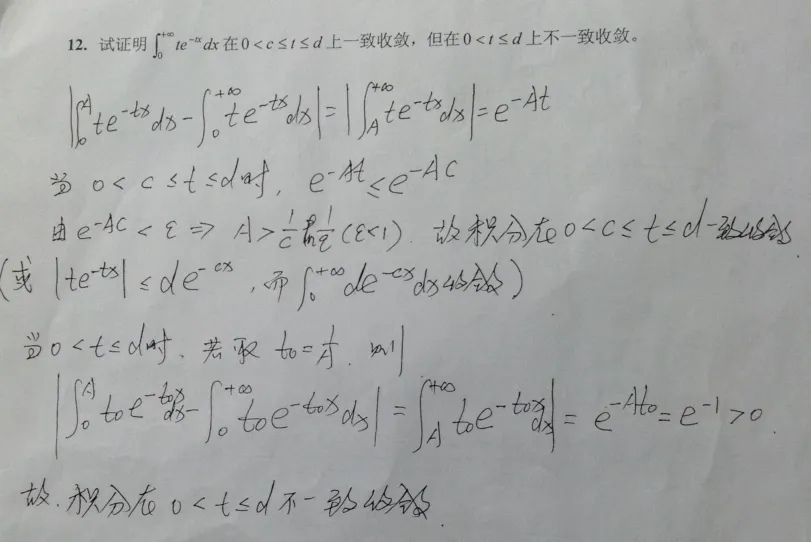 12. 试证明 ∫₀^{+∞} te^{-tx}dx 在 0<c≤t≤d 上一致收敛，但在 0<t≤d 上不一致收敛。
|∫₀^A te^{-tx}dx - ∫₀^{+∞} te^{-tx}dx| = |∫_A^{+∞} te^{-tx}dx| = e^{-At}
当 0<c≤t≤d时, e^{-At} ≤ e^{-AC}
由 e^{-AC} < ε ⇒ A > 1/c ln 1/ε (ε<1). 故积分在 0<c≤t≤d 一致收敛
(或 |te^{-tx}| ≤ de^{-cx}, 而 ∫₀^{+∞} de^{-cx}dx收敛)
当 0<t≤d时, 若取 t₀=1/A, 则
|∫₀^A t₀e^{-t₀x}dx - ∫₀^{+∞} t₀e^{-t₀x}dx| = ∫_A^{+∞} t₀e^{-t₀x}dx| = e^{-At₀} = e^{-1} > 0.
故.积分在 0<t≤d 不一致收敛